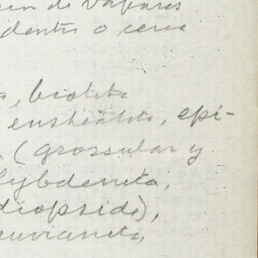 de vapores
dentro o cerca
biotita
enstatita, epi-
(grossular y
lybdenita,
diopsido),
suvianita,